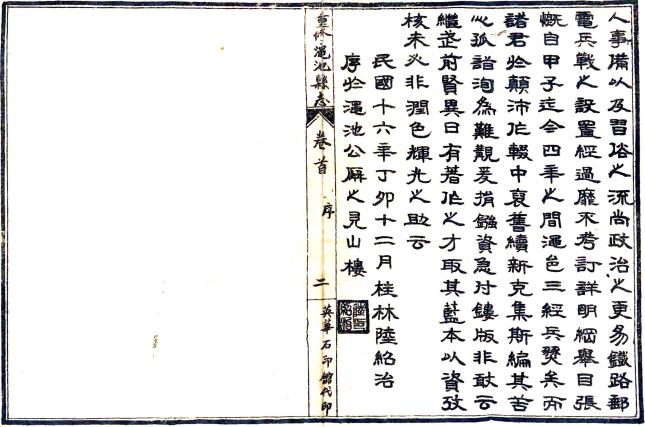 人事備以及習俗之流尚政治之更易鐵路郵
電兵戰之設置經過靡不考訂詳明綱舉目張
慨自甲子迄今四年之間澠邑三經兵燹矣而
諸君於顛沛作輟中裒舊續新克集斯編其苦
心孤詣洵為難觀爰捐鏹資急付鏤版非敢云
繼武前賢異日有著作之才取其藍本以資攷
核未必非潤色輝光之助云
民國十六年丁卯十二月桂林陸紹治
序於澠池公廨之見山樓
重修澠池縣志
卷首
序
二
英華石印館代印